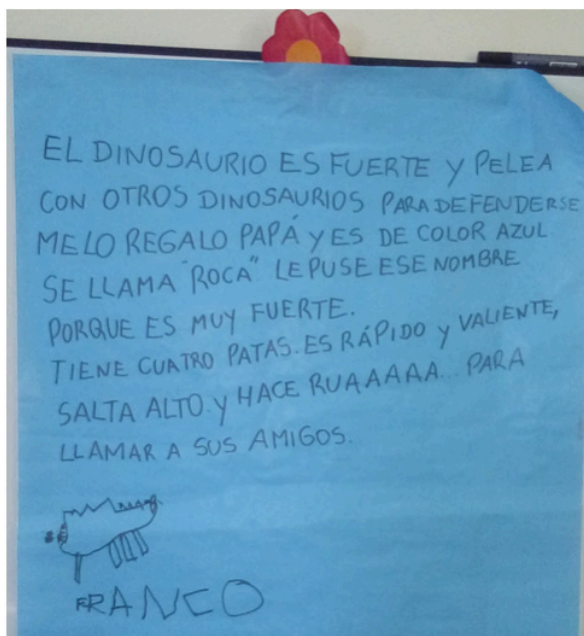 EL DINOSAURIO ES FUERTE Y PELEA
CON OTROS DINOSAURIOS PARA DEFENDERSE
MELO REGALO PAPÁ Y ES DE COLOR AZUL
SE LLAMA "ROCA" LE PUSE ESE NOMBRE
PORQUE ES MUY FUERTE.
TIENE CUATRO PATAS. ES RÁPIDO Y VALIENTE,
SALTA ALTO Y HACE RUAAAAA... PARA
LLAMAR A SUS AMIGOS.
FRANCO